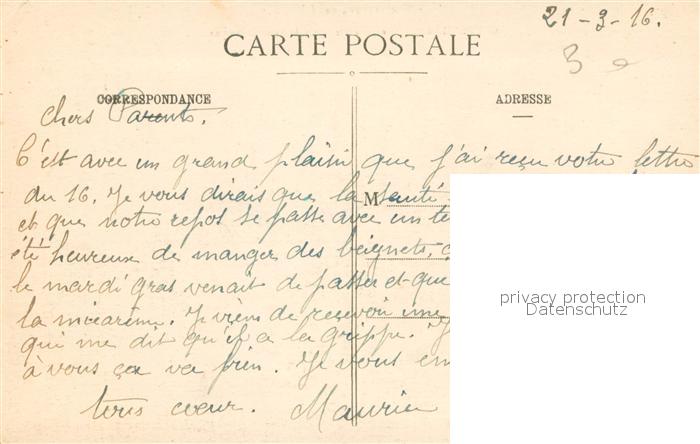 21-3-16.
CARTE POSTALE
3 e
CORRESPONDANCE
ADRESSE
Chers Parents.
C'est avec un grand plaisir que j'ai reçu votre lettre
du 16. Je vous dirais que la santé
M
et que notre repos se passe avec un te
été heureux de manger des beignets, c
le mardi gras venait de passer et que
la micarême. Je viens de recevoir une
qui me dit qu'il a la grippe. J
à vous ça va bien. Je vous em
tous coeur. Maurice
privacy protection
Datenschutz